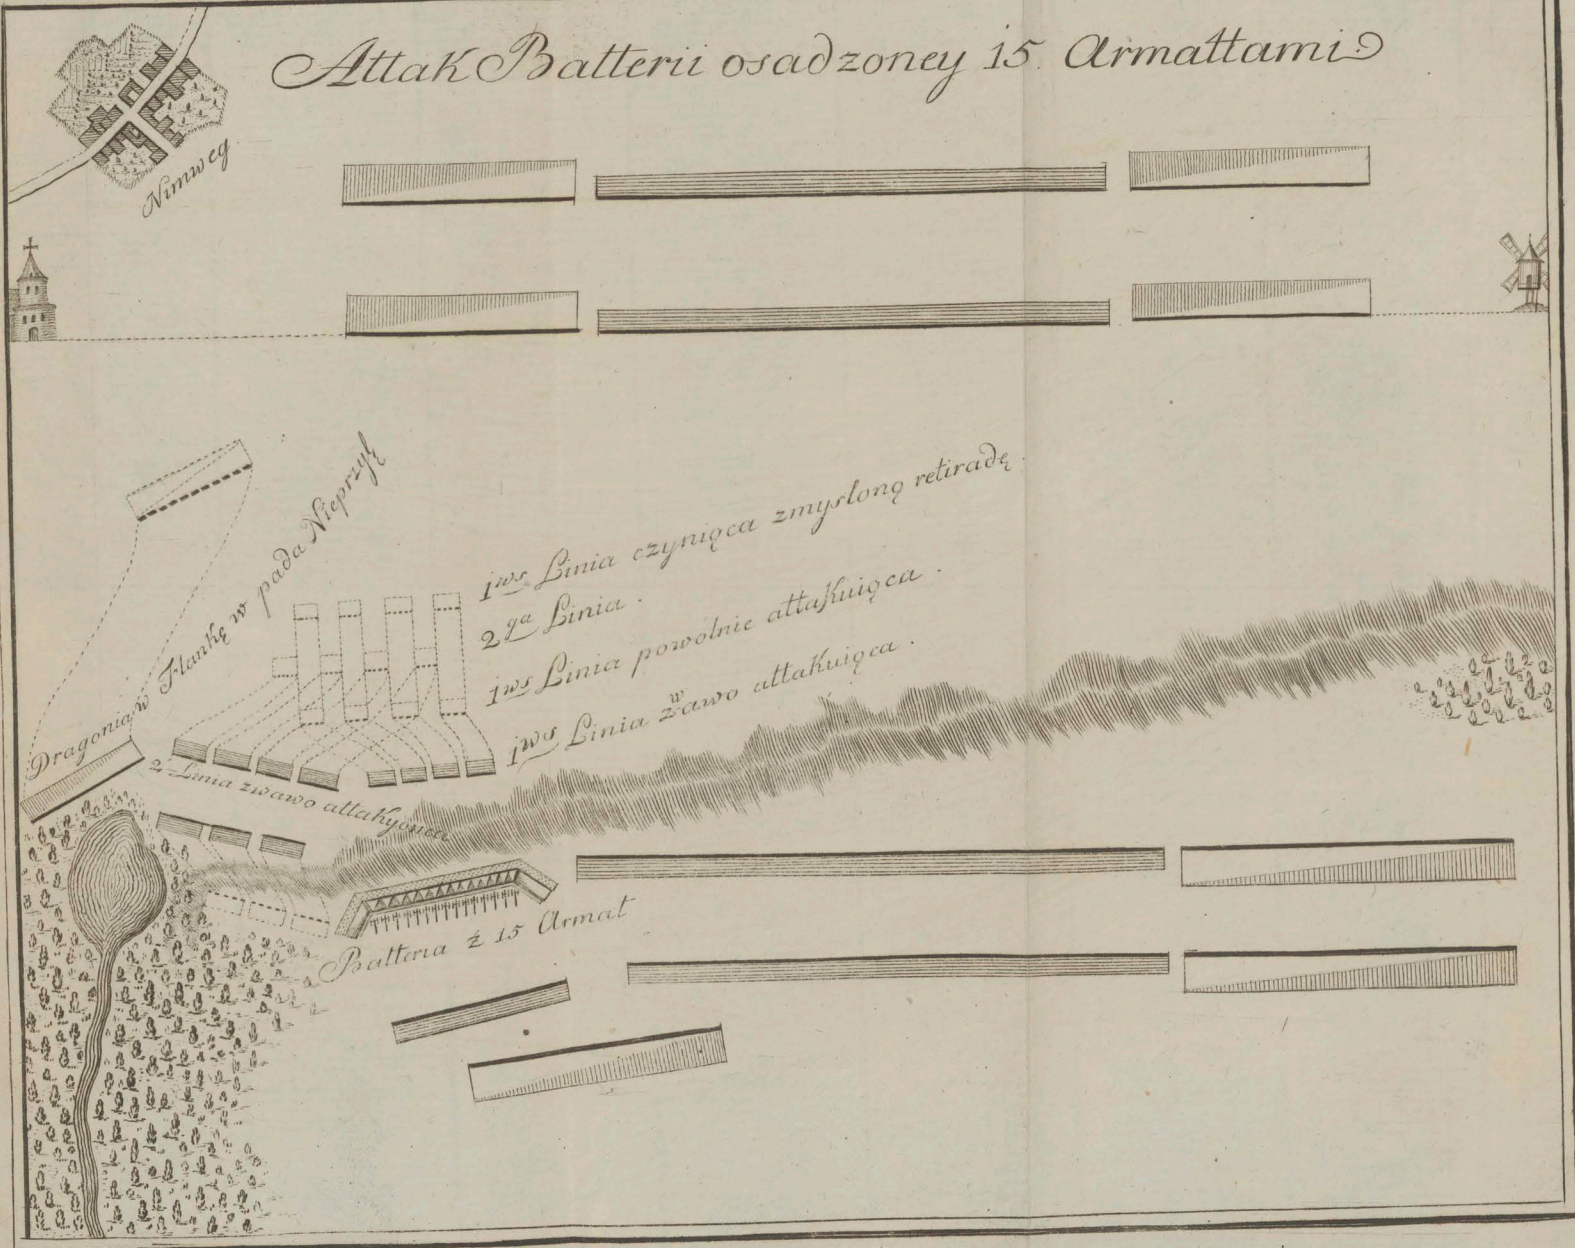 Attak Batterii osadzoney 15 Armattami
Nimweg
Dragonia w Flankę w pada Nieprzył
1ws Linia czyniąca zmysloną retiradę
2ga Linia.
1ws Linia powolnie attakuiąca.
1ws Linia zwawo attakuiąca.
2 Linia zwawo attakyonca
Batteria z 15 Armat